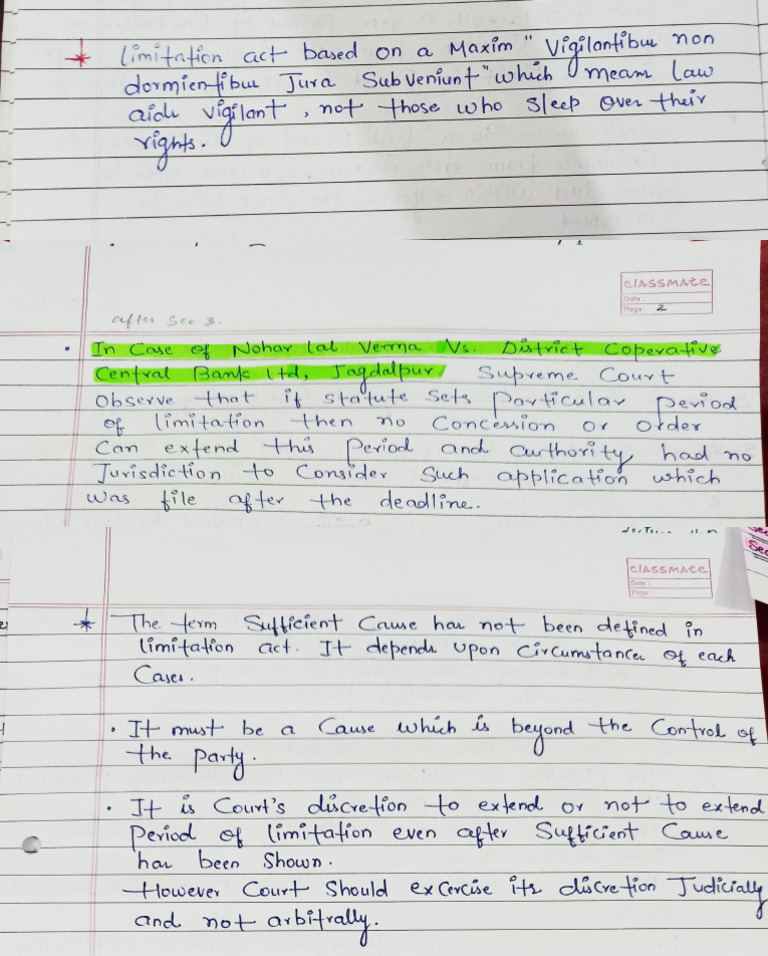 * Limitation act based on a Maxim "Vigilantibus non
dormientibus Jura Subveniunt" which means Law
aids vigilant, not those who sleep over their
rights.
CLASSMATE
Date :
Page : 2
after Sec 3.
• In Case of Nohar Lal Verma Vs. District Coperative
Central Bank Ltd, Jagdalpur/ Supreme Court
Observe that if statute sets particular period
of limitation then no Concession or order
Can extend this Period and authority had no
Jurisdiction to Consider Such application which
was file after the deadline.
CLASSMATE
Date :
Page :
Sec
* The term Sufficient Cause has not been defined in
limitation act. It depends upon Circumstances of each
Cases.
• It must be a Cause which is beyond the Control of
the party.
• It is Court's discretion to extend or not to extend
Period of limitation even after Sufficient Cause
has been Shown.
However Court Should excercise its discretion Judicially
and not arbitrally.